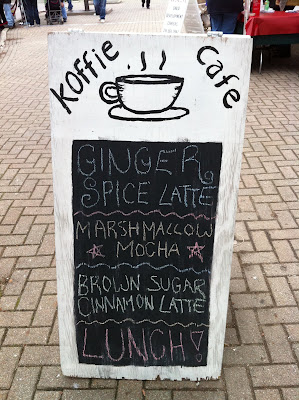 koffie cafe
GINGER
SPICE LATTE
MARSHMALLOW
MOCHA
BROWN SUGAR
CINNAMON LATTE
LUNCH!